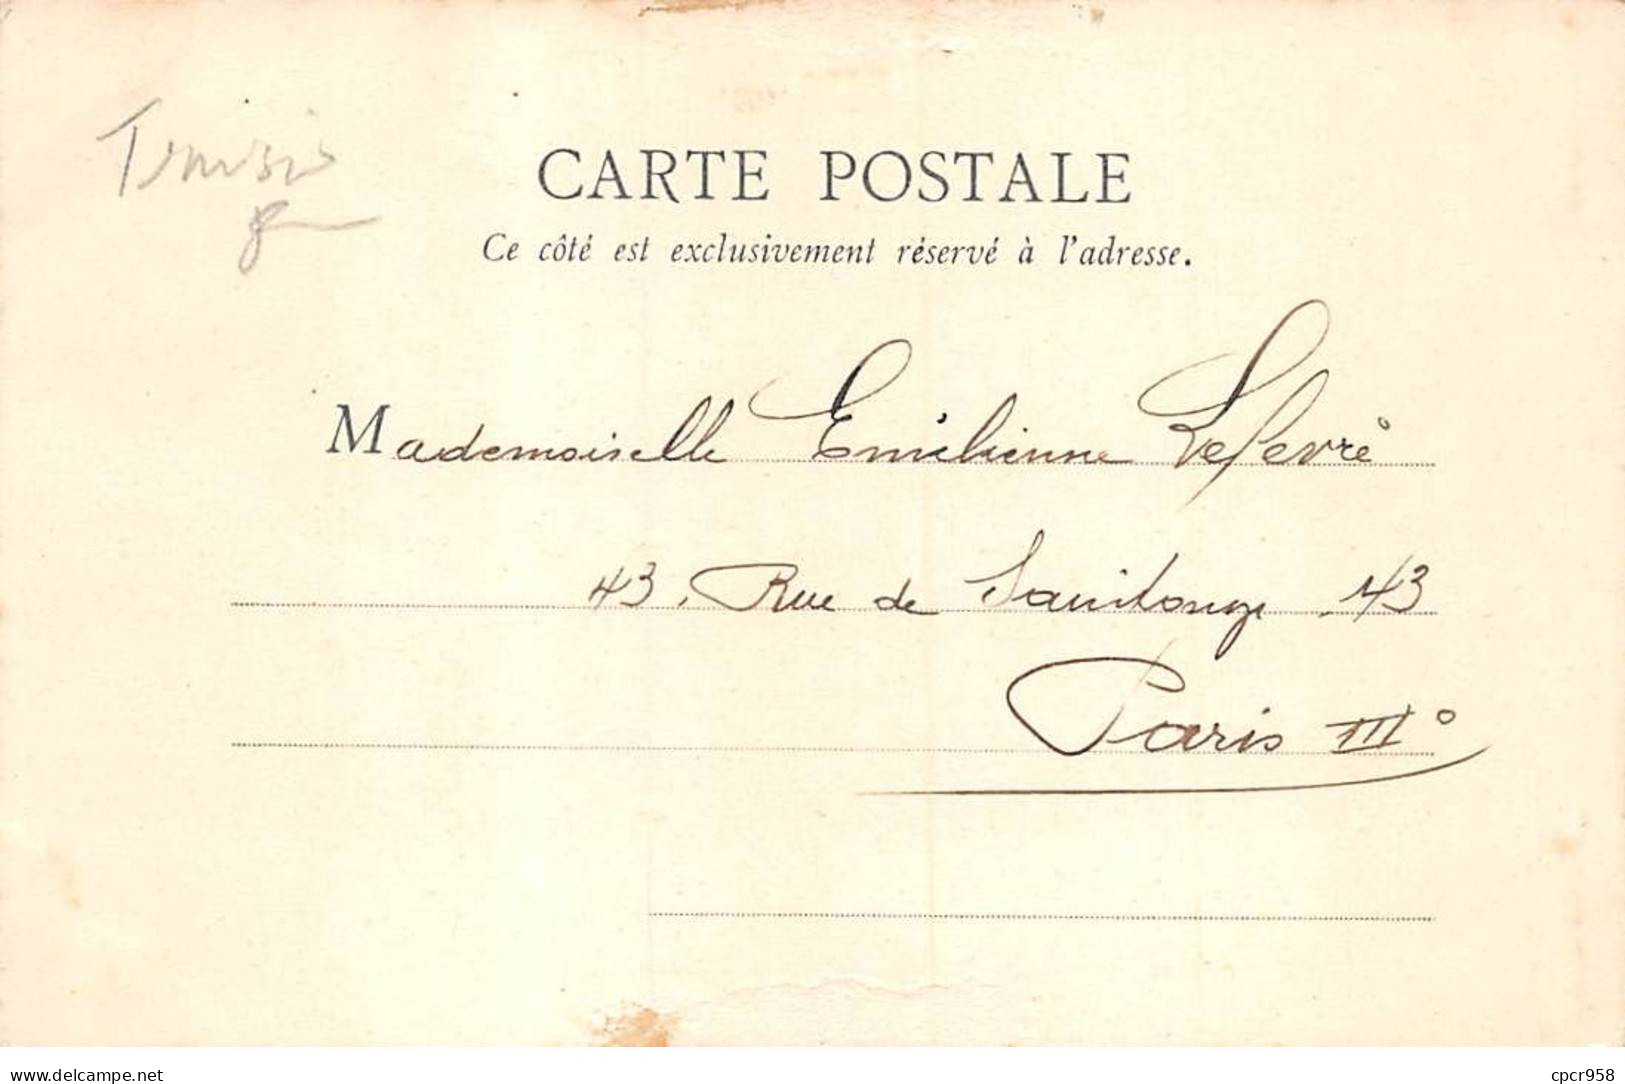 Tunisie
CARTE POSTALE
Ce côté est exclusivement réservé à l'adresse.
Mademoiselle Emilienne Lefevre
43, Rue de Saintonge 43
Paris III°
delcampe.net
cpcr958